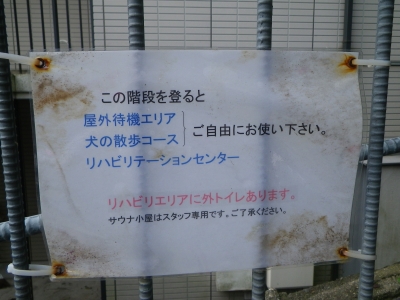 この階段を登ると
屋外待機エリア
犬の散歩コース
ご自由にお使い下さい。
リハビリテーションセンター
リハビリエリアに外トイレあります。
サウナ小屋はスタッフ専用です。ご了承ください。